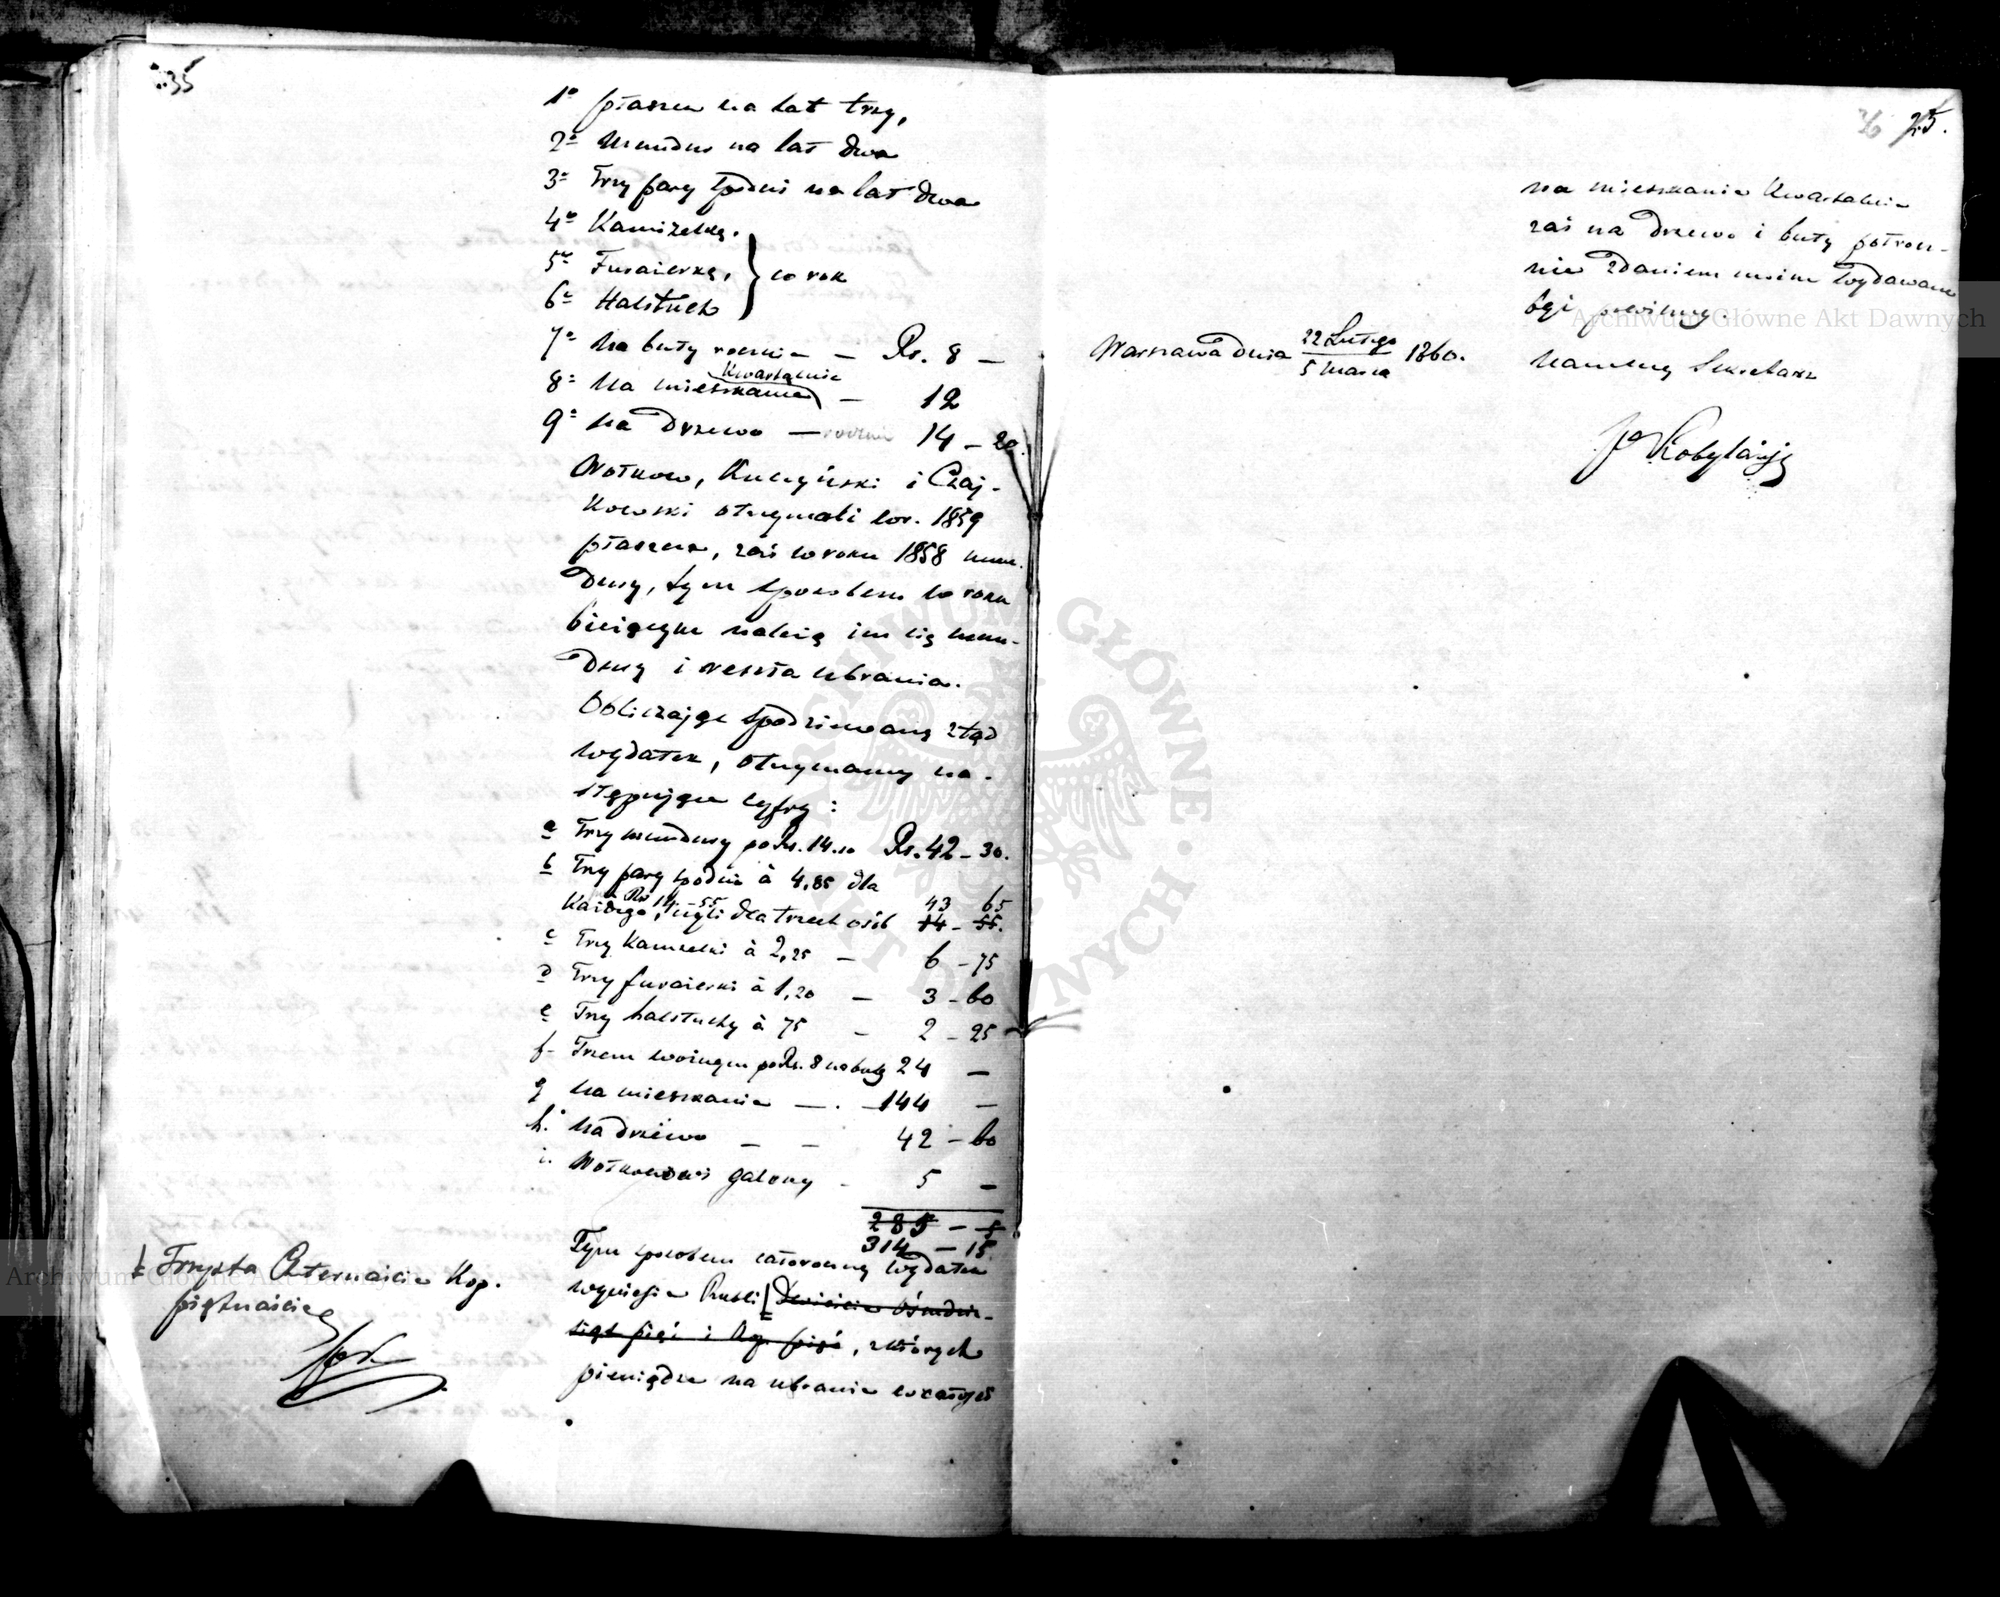 35
1º płaszcz na lat trzy,
2º Mundur na lat dwa
3º Trzy pary spodni na lat dwa
4º Kamizelkę.
5º Furażerkę, } w rok
6º Halsztuch
7º Na buty rocznie — Rs. 8 —
8º Na mieszkanie kwartalnie — 12
9º Na drzewo — rocznie 14 – 20.
Wołkow, Kuczyński i Czaj-
kowski otrzymali w r. 1859
płaszcze, zaś w roku 1858 mun-
dury, tym sposobem w roku
bieżącym należą im się mun-
dury i reszta ubrania.
Obliczając spodziewany ztąd
wydatek, otrzymamy na-
stępujące cyfry:
a Trzy mundury po Rs. 14.10 Rs. 42 – 30.
b Trzy pary spodni à 4,85 dla
każdego, Rs 14–55 czyli dla trzech osób 43 65
14 – 55.
c Trzy kamizelki à 2,25 — 6 – 75
d Trzy furażerki à 1,20 — 3 – 60
e Trzy halsztuchy à 75 — 2 – 25
f Trzem woźnym po Rs. 8 na buty 24 —
g Na mieszkanie — 144 —
h. Na drzewo — — 42 – 60
i. Wołkowowi galony - 5 —
285 – 5
314 – 15.
Tym sposobem całoroczny wydatek
wyniesie Rubli Dwieście Ośmdzie-
siąt pięć i kop. pięć, z których
pieniądze na ubranie w całości
Trzysta Czternaście Kop.
piętnaście
36 25.
na mieszkanie kwartalnie
zaś na drzewo i buty półrocz-
nie zdaniem moim wydawane
być powinny.
Warszawa dnia 22 Lutego / 5 Marca 1860.
Naczelny Sekretarz
Kobylański
Archiwum Główne Akt Dawnych
Archiwum Główne Akt Dawnych
ARCHIWUM GŁÓWNE AKT DAWNYCH